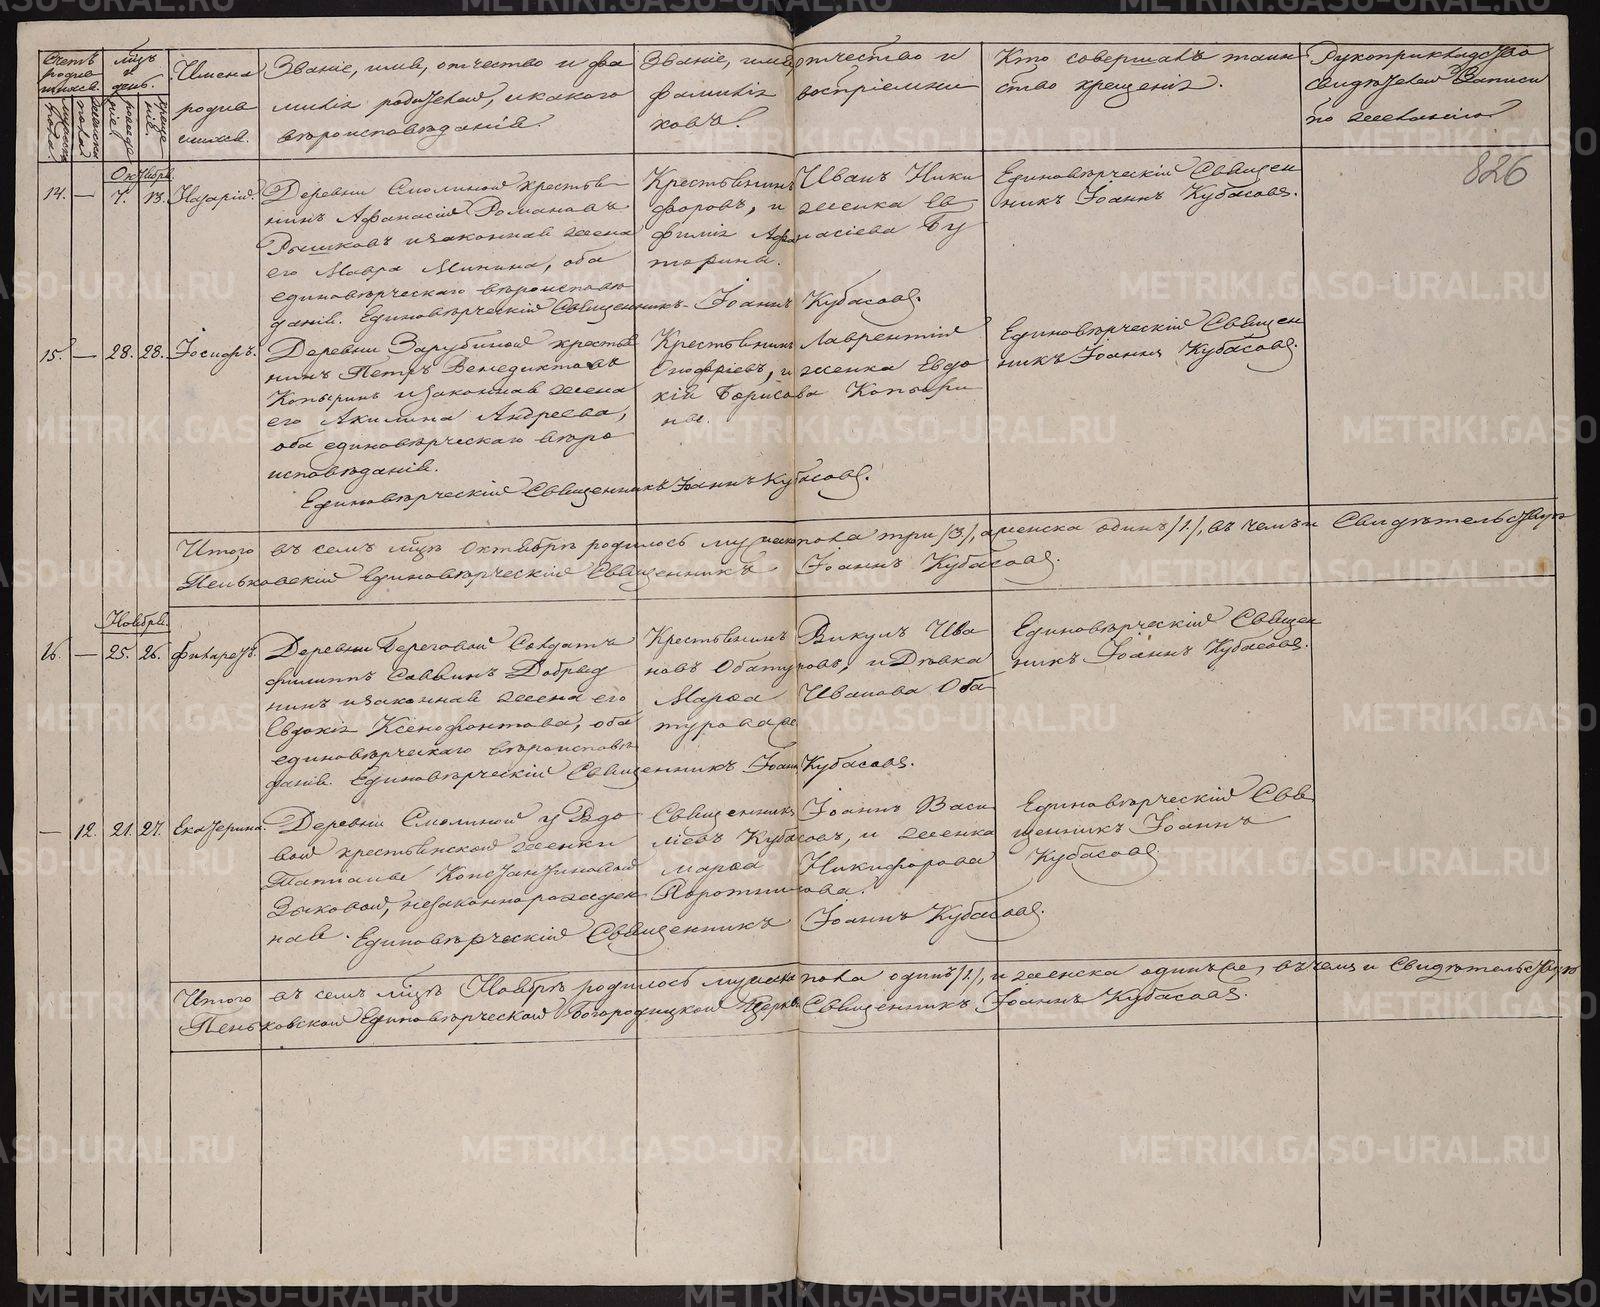 Счетъ родившихся.
Мцъ и день.
Имена родившихся.
Званіе, имя, отчество и фамилія родителей, и какого вѣроисповѣданія.
Званіе, имя, отчество и фамилія воспріемниковъ.
Кто совершалъ таинство крещенія.
Рукоприкладство свидѣтелей записи по желанію
826
Октября
14. — 7. 13. Назарій.
Деревни Смолиной крестья
нинъ Афанасій Романовъ
Рышковъ и законная жена
его Мавра Минина, оба
единовѣрческаго вѣроисповѣ
данія. Единовѣрческій Священникъ Іоаннъ Кубасовъ.
Крестьянинъ Иванъ Ники
форовъ, и женка Ев
фимія Афанасіева Бу
торины.
Единовѣрческій Священ
никъ Іоаннъ Кубасовъ.
15. — 28. 28. Іосифъ.
Деревни Зарубиной крестья
нинъ Петръ Венедиктовъ
Копыринъ и законная жена
его Акилина Андреева,
оба единовѣрческаго вѣро
исповѣданія.
Единовѣрческій Священникъ Іоаннъ Кубасовъ.
Крестьянинъ Лаврентій
Елифѣріевъ, и женка Евдо
кія Борисова Копыри
ны.
Единовѣрческій Священ
никъ Іоаннъ Кубасовъ.
Итого въ семъ мцѣ Октябрѣ родилось мужеска пола три /3/, а женска одинъ /1/, въ чемъ и Свидѣтельствую
Пеньковскій Единовѣрческій Священникъ Іоаннъ Кубасовъ.
Ноября
16. — 25. 26. Филаретъ.
Деревни Береговой Солдатъ
Филиппъ Саввинъ Добрыд
нинъ и законная жена его
Евдокія Ксенофонтова, оба
единовѣрческаго вѣроисповѣ
данія. Единовѣрческій Священникъ Іоаннъ Кубасовъ.
Крестьянинъ Викулъ Ива
новъ Обатуровъ, и Дѣвка
Марѳа Иванова Оба
турова.
Единовѣрческій Священ
никъ Іоаннъ Кубасовъ.
— 12. 21. 27. Екатерина.
Деревни Смолиной у Вдо
вой крестьянской женки
Татіаны Константиновой
Зыковой, незаконнорожден
ная. Единовѣрческій Священникъ Іоаннъ Кубасовъ.
Священникъ Іоаннъ Васи
ліевъ Кубасовъ, и женка
Марѳа Никифорова
Поротникова.
Единовѣрческій Свя
щенникъ Іоаннъ
Кубасовъ
Итого въ семъ мцѣ Ноябрѣ родилось мужеска пола одинъ /1/, и женска одинъ же, въ чемъ и Свидѣтельствую
Пеньковской Единовѣрческой Богородицкой Церкви Священникъ Іоаннъ Кубасовъ.
METRIKI.GASO-URAL.RU